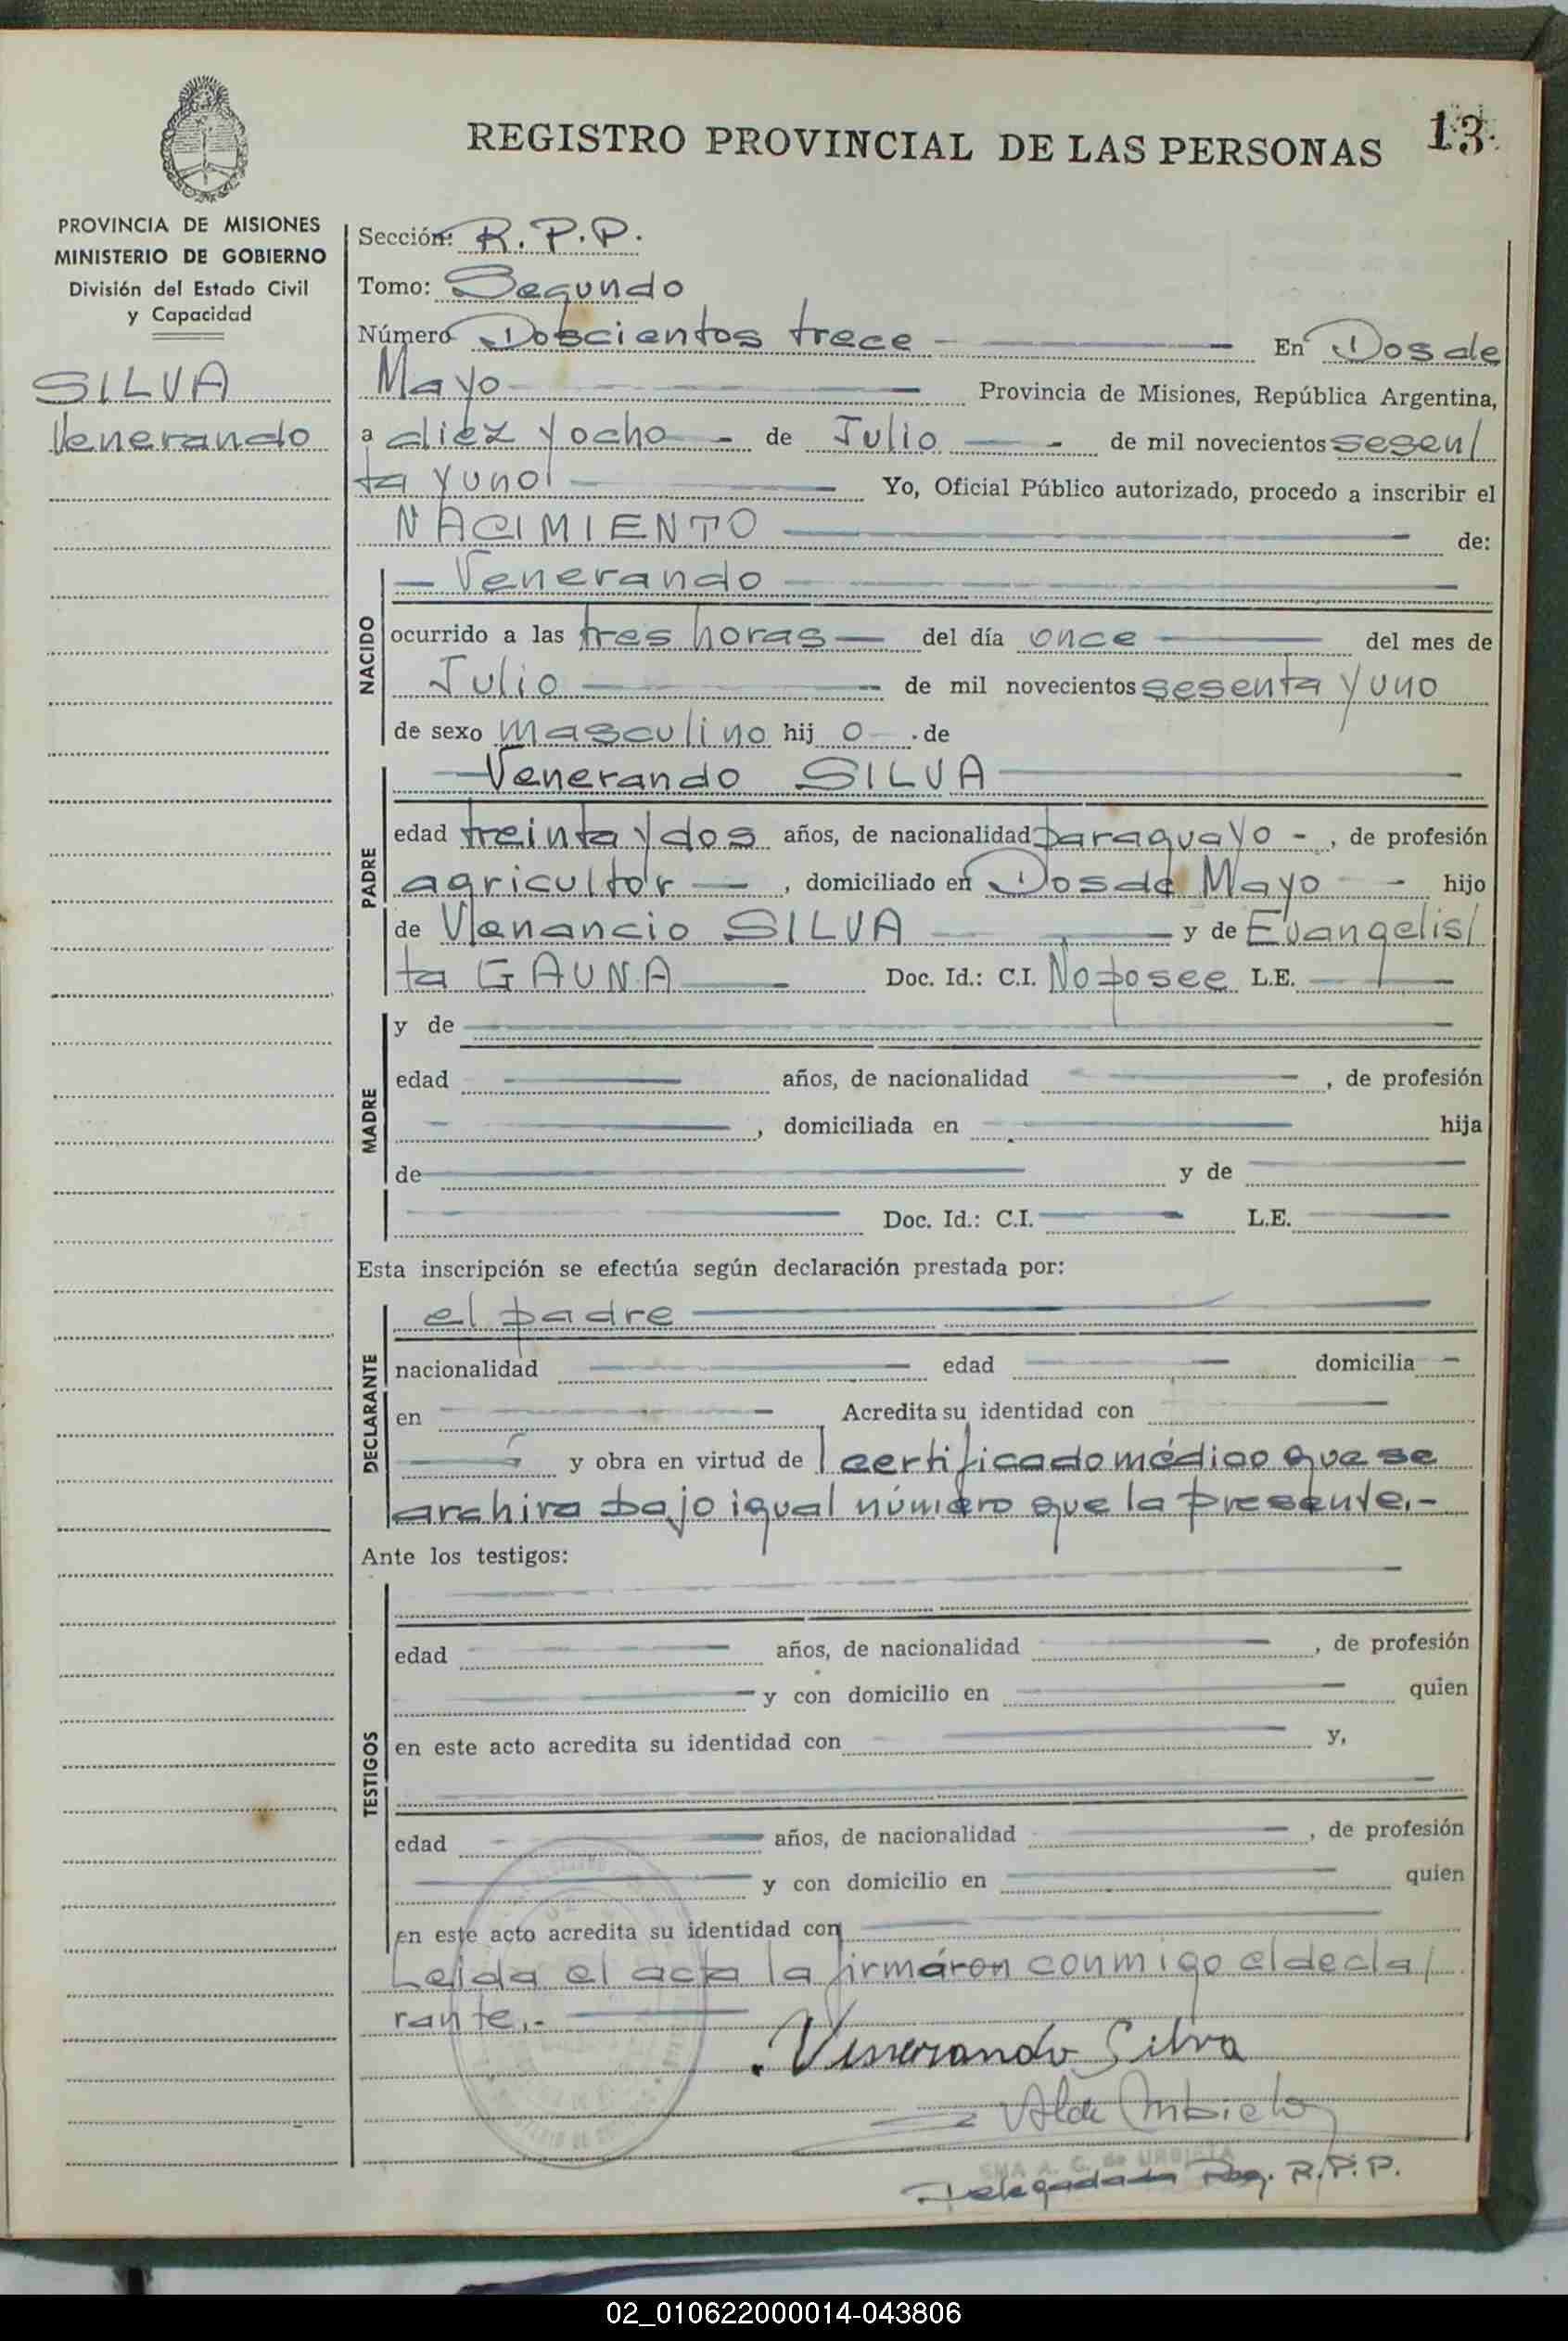 REGISTRO PROVINCIAL DE LAS PERSONAS
13.
PROVINCIA DE MISIONES
MINISTERIO DE GOBIERNO
División del Estado Civil
y Capacidad
SILVA
Venerando
Sección: R. P. P.
Tomo: Segundo
Número Doscientos trece En Dos de
Mayo Provincia de Misiones, República Argentina,
a diez y ocho de Julio de mil novecientos sesen/
ta y uno Yo, Oficial Público autorizado, procedo a inscribir el
NACIMIENTO de:
NACIDO
Venerando
ocurrido a las tres horas del día once del mes de
Julio de mil novecientos sesenta y uno
de sexo masculino hij o de
PADRE
Venerando SILVA
edad treinta y dos años, de nacionalidad paraguayo, de profesión
agricultor, domiciliado en Dos de Mayo hijo
de Venancio SILVA y de Evangelis/
ta GAUNA Doc. Id.: C.I. No posee L.E.
MADRE
y de
edad años, de nacionalidad , de profesión
, domiciliada en hija
de y de
Doc. Id.: C.I. L.E.
Esta inscripción se efectúa según declaración prestada por:
DECLARANTE
el padre
nacionalidad edad domicilia
en Acredita su identidad con
y obra en virtud de l certificado médico que se
archiva bajo igual número que la presente.-
Ante los testigos:
TESTIGOS
edad años, de nacionalidad , de profesión
y con domicilio en quien
en este acto acredita su identidad con y,
edad años, de nacionalidad , de profesión
y con domicilio en quien
en este acto acredita su identidad con
Leída el acta la firmáron conmigo el decla/
rante.-
Venerando Silva
A. G. de URBIETA
Delegada Reg. R.P.P.
02_010622000014-043806